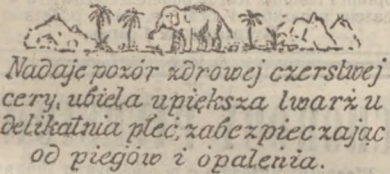 Nadaje pozór zdrowej czerstwej
cery, ubiela upiększa twarz u
delikatnia płeć, zabezpieczając
od piegów i opalenia.